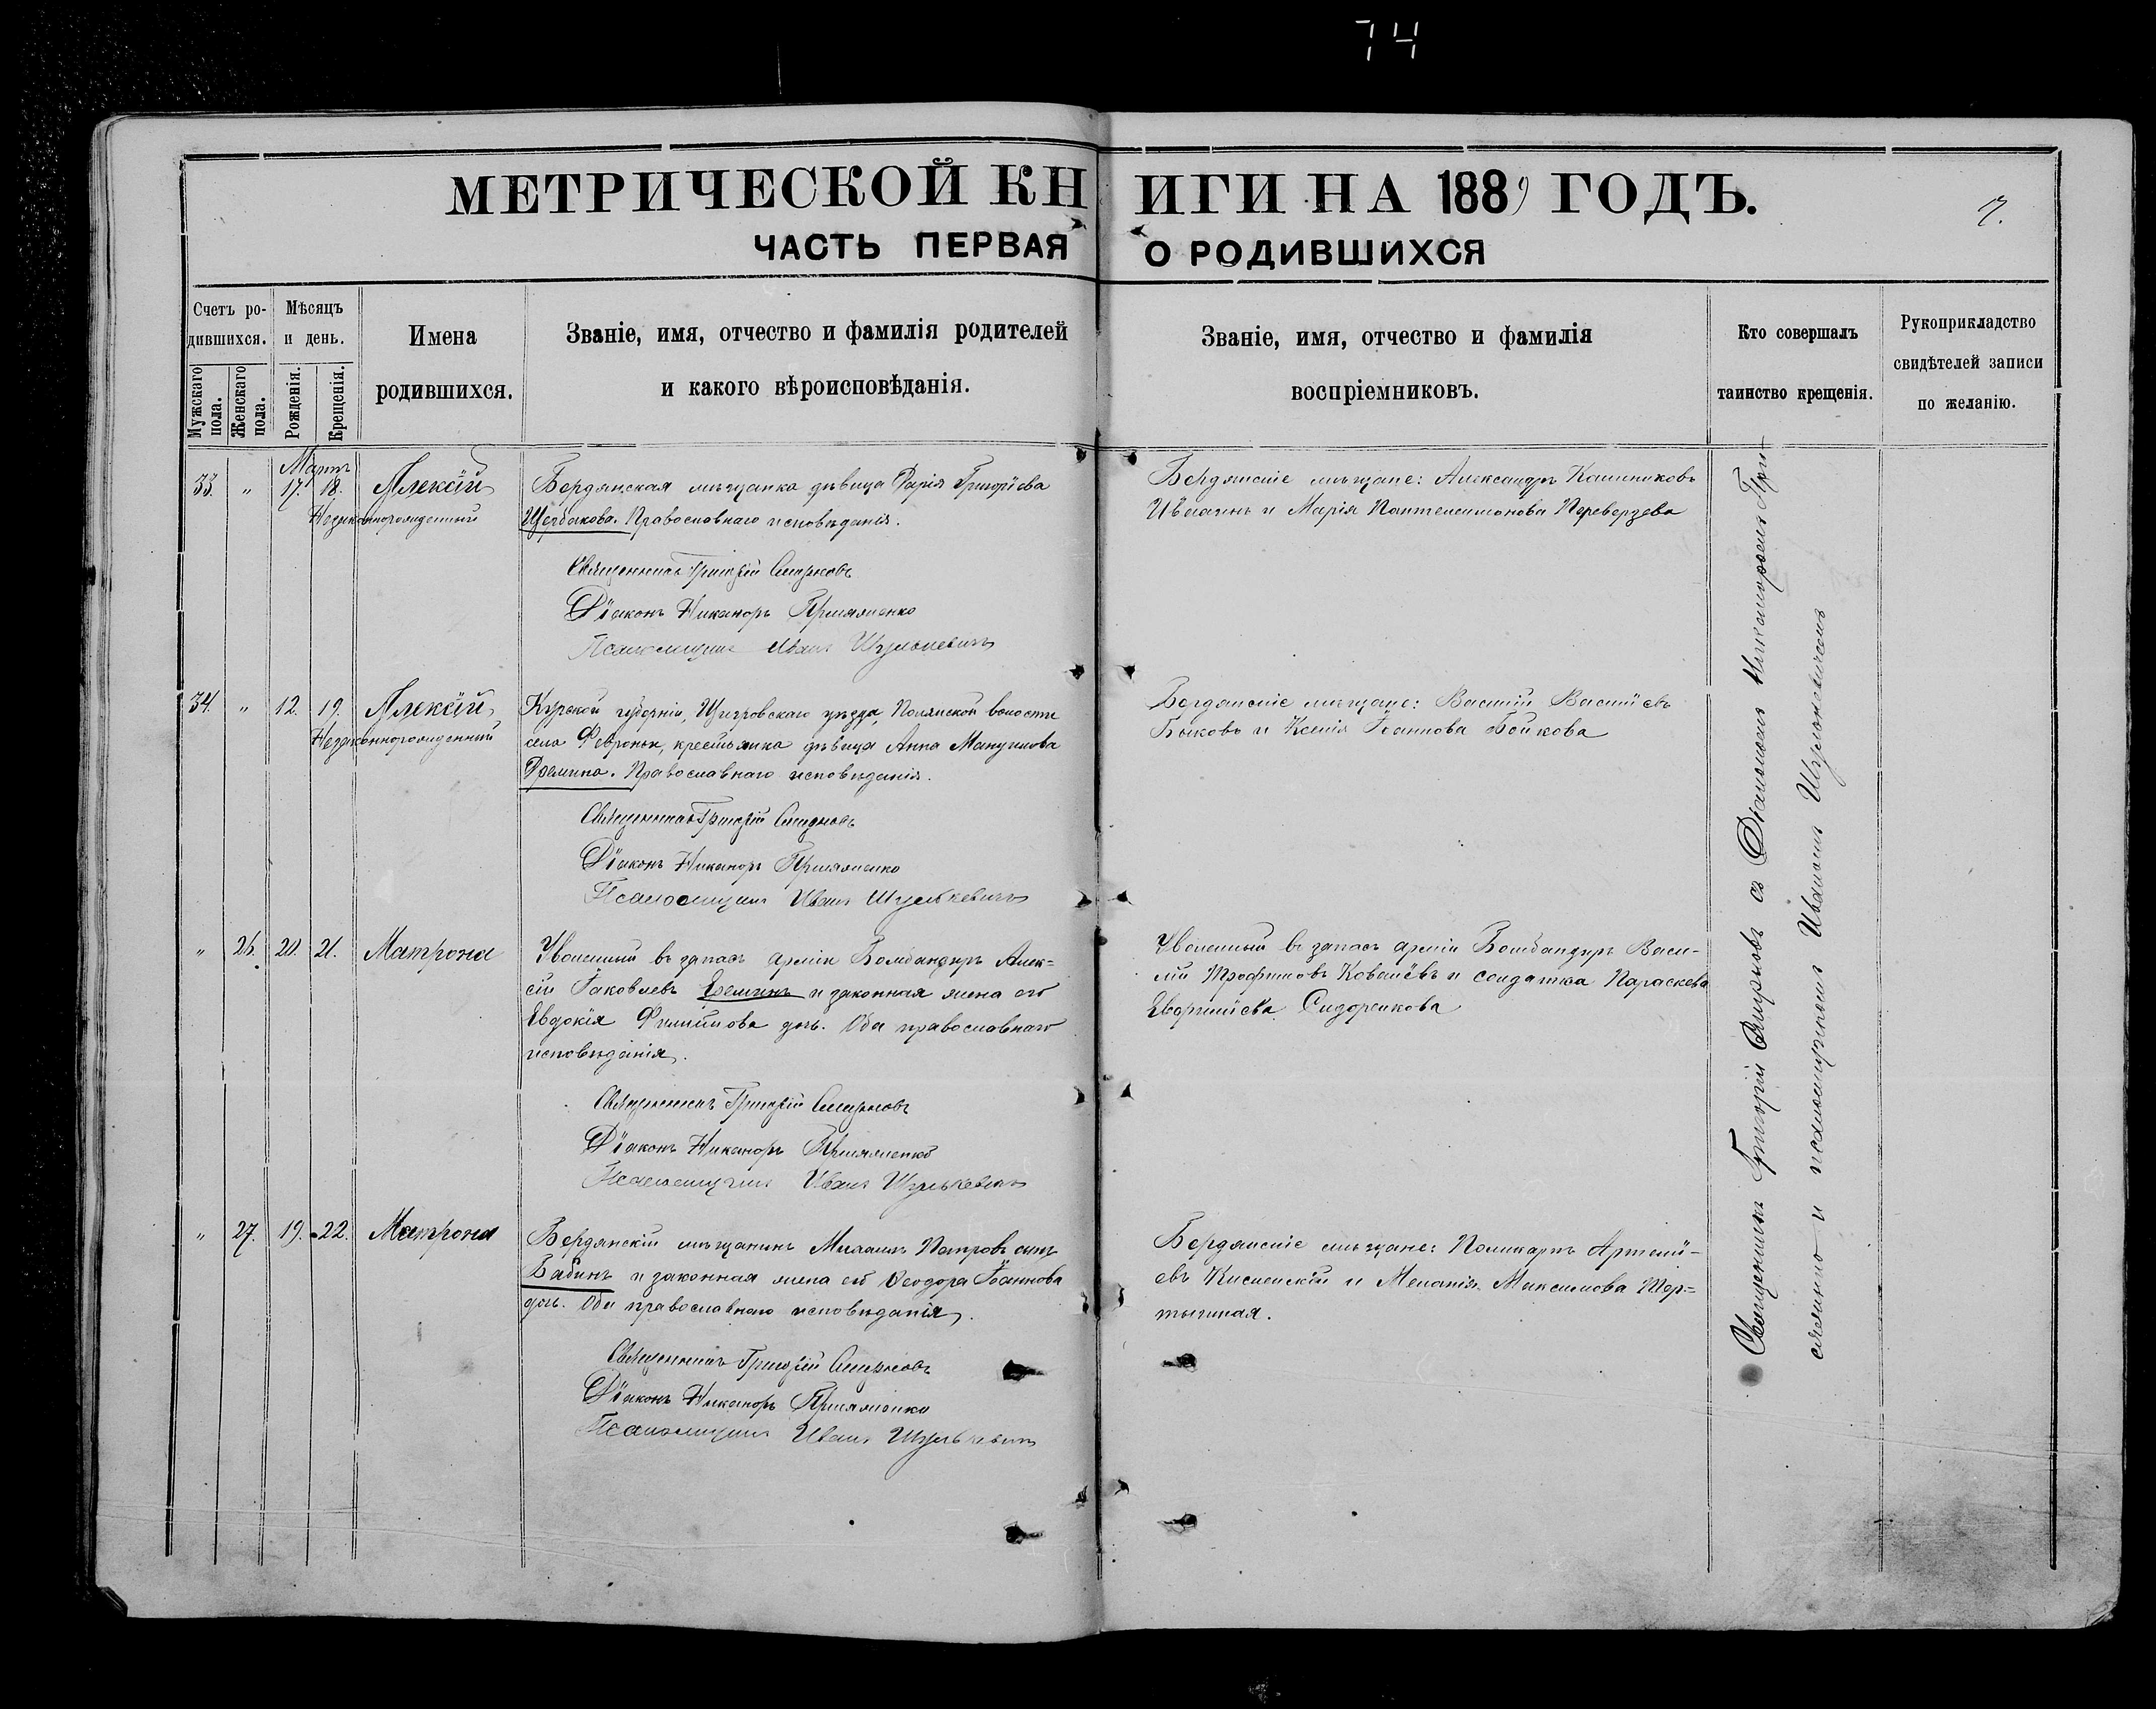 74
МЕТРИЧЕСКОЙ КНИГИ НА 1889 ГОДЪ.
7.
ЧАСТЬ ПЕРВАЯ О РОДИВШИХСЯ
Счетъ родившихся.
Мужскаго пола.
Женскаго пола.
Мѣсяцъ и день.
Рожденія.
Крещенія.
Имена родившихся.
Званіе, имя, отчество и фамилія родителей
и какого вѣроисповѣданія.
Званіе, имя, отчество и фамилія
воспріемниковъ.
Кто совершалъ
таинство крещенія.
Рукоприкладство
свидѣтелей записи
по желанію.
Мартъ
33. " 17. 18. Алексій
Незаконнорожденный
Бердянская мѣщанка дѣвица Дарія Григоріева
Щербакова. Православнаго исповѣданія.
Священникъ Григорій Смирновъ
Діаконъ Никаноръ
Псаломщикъ Иванъ Шулькевичъ
Бердянскіе мѣщане: Александръ
и Марія Пантелеимонова Переверзева
34. " 12. 19. Алексій
Незаконнорожденный
Курской губерніи, Щигровскаго уѣзда, Полянской волости
села крестьянка дѣвица Анна Мануилова
Еремина. Православнаго исповѣданія.
Священникъ Григорій Смирновъ
Діаконъ Никаноръ
Псаломщикъ Иванъ Шулькевичъ
Бердянскіе мѣщане: Василій Василіевъ
Быковъ и Ксенія Іоаннова Бойкова
" 26. 20. 21. Матрона
Уволенный въ запасъ арміи Бомбандиръ Алек=
сій Іаковлевъ Ереминъ и законная жена его
Евдокія Филиппова дочь. Оба православнаго
исповѣданія.
Священникъ Григорій Смирновъ
Діаконъ Никаноръ
Псаломщикъ Иванъ Шулькевичъ
Уволенный въ запасъ арміи Бомбандиръ Васи-
лій Трофимовъ Ковалёвъ и солдатка Параскева
Сидоренкова
" 27. 19. 22. Матрона
Бердянскій мѣщанинъ Михаилъ Петровъ сынъ
Бабинъ и законная жена его Ѳеодора Іоаннова
дочь. Оба православнаго исповѣданія.
Священникъ Григорій Смирновъ
Діаконъ Никаноръ
Псаломщикъ Иванъ Шулькевичъ
Бердянскіе мѣщане: Поликарпъ Артемі-
евъ и Меланія Максимова
Священникъ Григорій Смирновъ съ Діакономъ Никаноромъ
и псаломщикомъ Иваномъ Шулькевичемъ